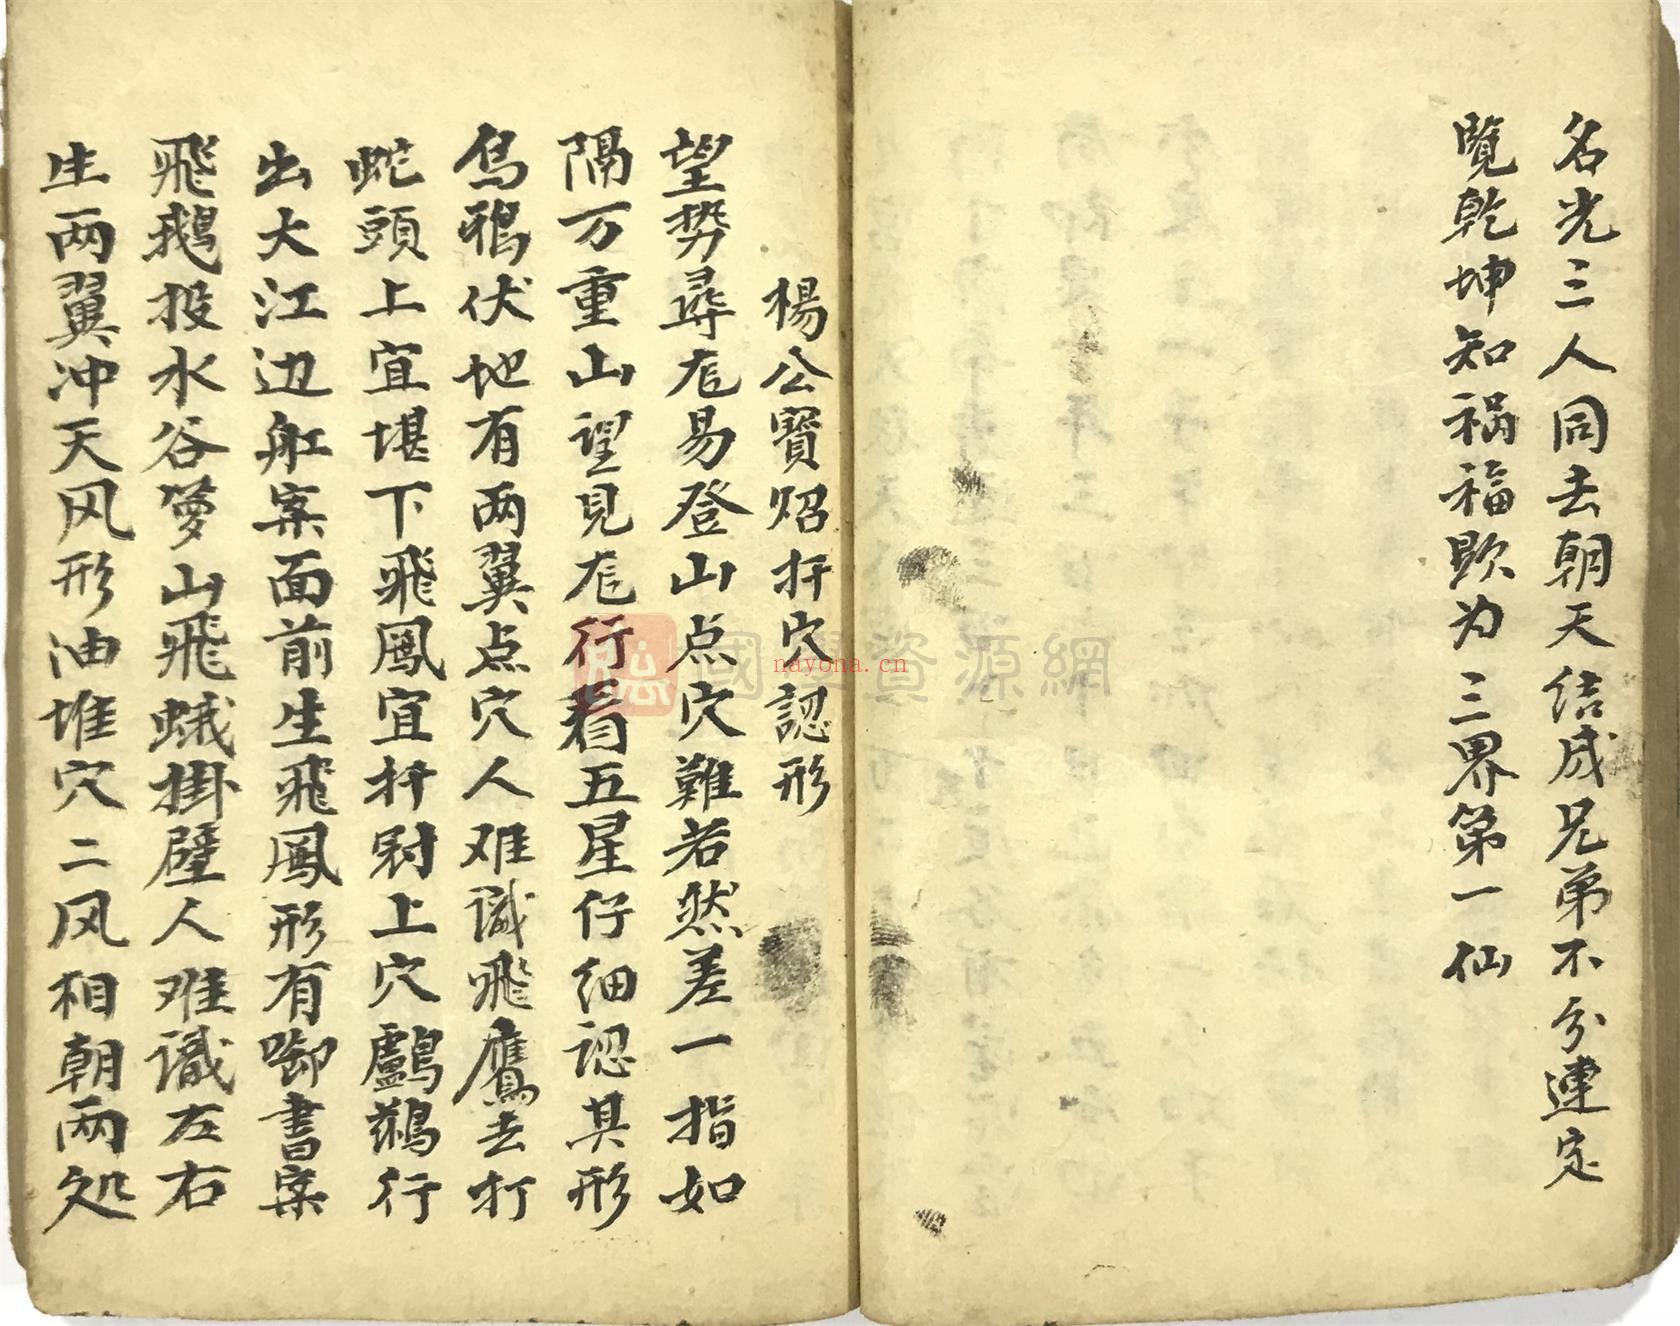 名光三人同去朝天结成兄弟不分連定
覽乾坤知祸福为三界第一仙
楊公寳炤扦穴認形
望势尋龙易登山点穴難若然差一指如
隔万重山望見龙行看五星仔细認其形
烏鸦伏地有两翼点穴人难識飛鷹去打
蛇頭上宜堪下飛鳳宜扦上穴鸕鹚行
出大江边舡案面前生飛鳳形有啣書案
飛鹅投水谷箩山飛蛾掛壁人难識左右
生两翼冲天风形油堆穴二风相朝两处
國學資源網
nayona.cn